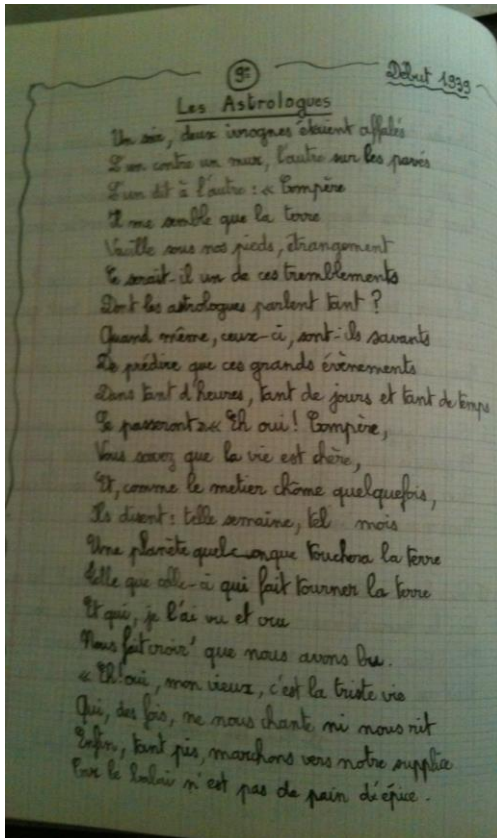 9e
Début 1939
Les Astrologues
Un soir, deux ivrognes étaient affalés
L'un contre un mur, l'autre sur les pavés
L'un dit à l'autre : « Compère
Il me semble que la terre
Vacille sous nos pieds, étrangement
Ce serait-il un de ces tremblements
Dont les astrologues parlent tant ?
Quand même, ceux-ci, sont-ils savants
De prédire que ces grands évènements
Dans tant d'heures, tant de jours et tant de temps
Se passeront »« Eh oui ! Compère,
Vous savez que la vie est chère,
Et, comme le metier chôme quelquefois,
Ils disent : telle semaine, tel mois
Une planète quelconque touchera la terre
Telle que celle-ci qui fait tourner la terre
Et qui, je l'ai vu et cru
Nous fait croir' que nous avons bu.
« Eh ! oui, mon vieux, c'est la triste vie
Qui, des fois, ne nous chante ni nous rit
Enfin, tant pis, marchons vers notre supplice
Car le balai n'est pas de pain d'épice.